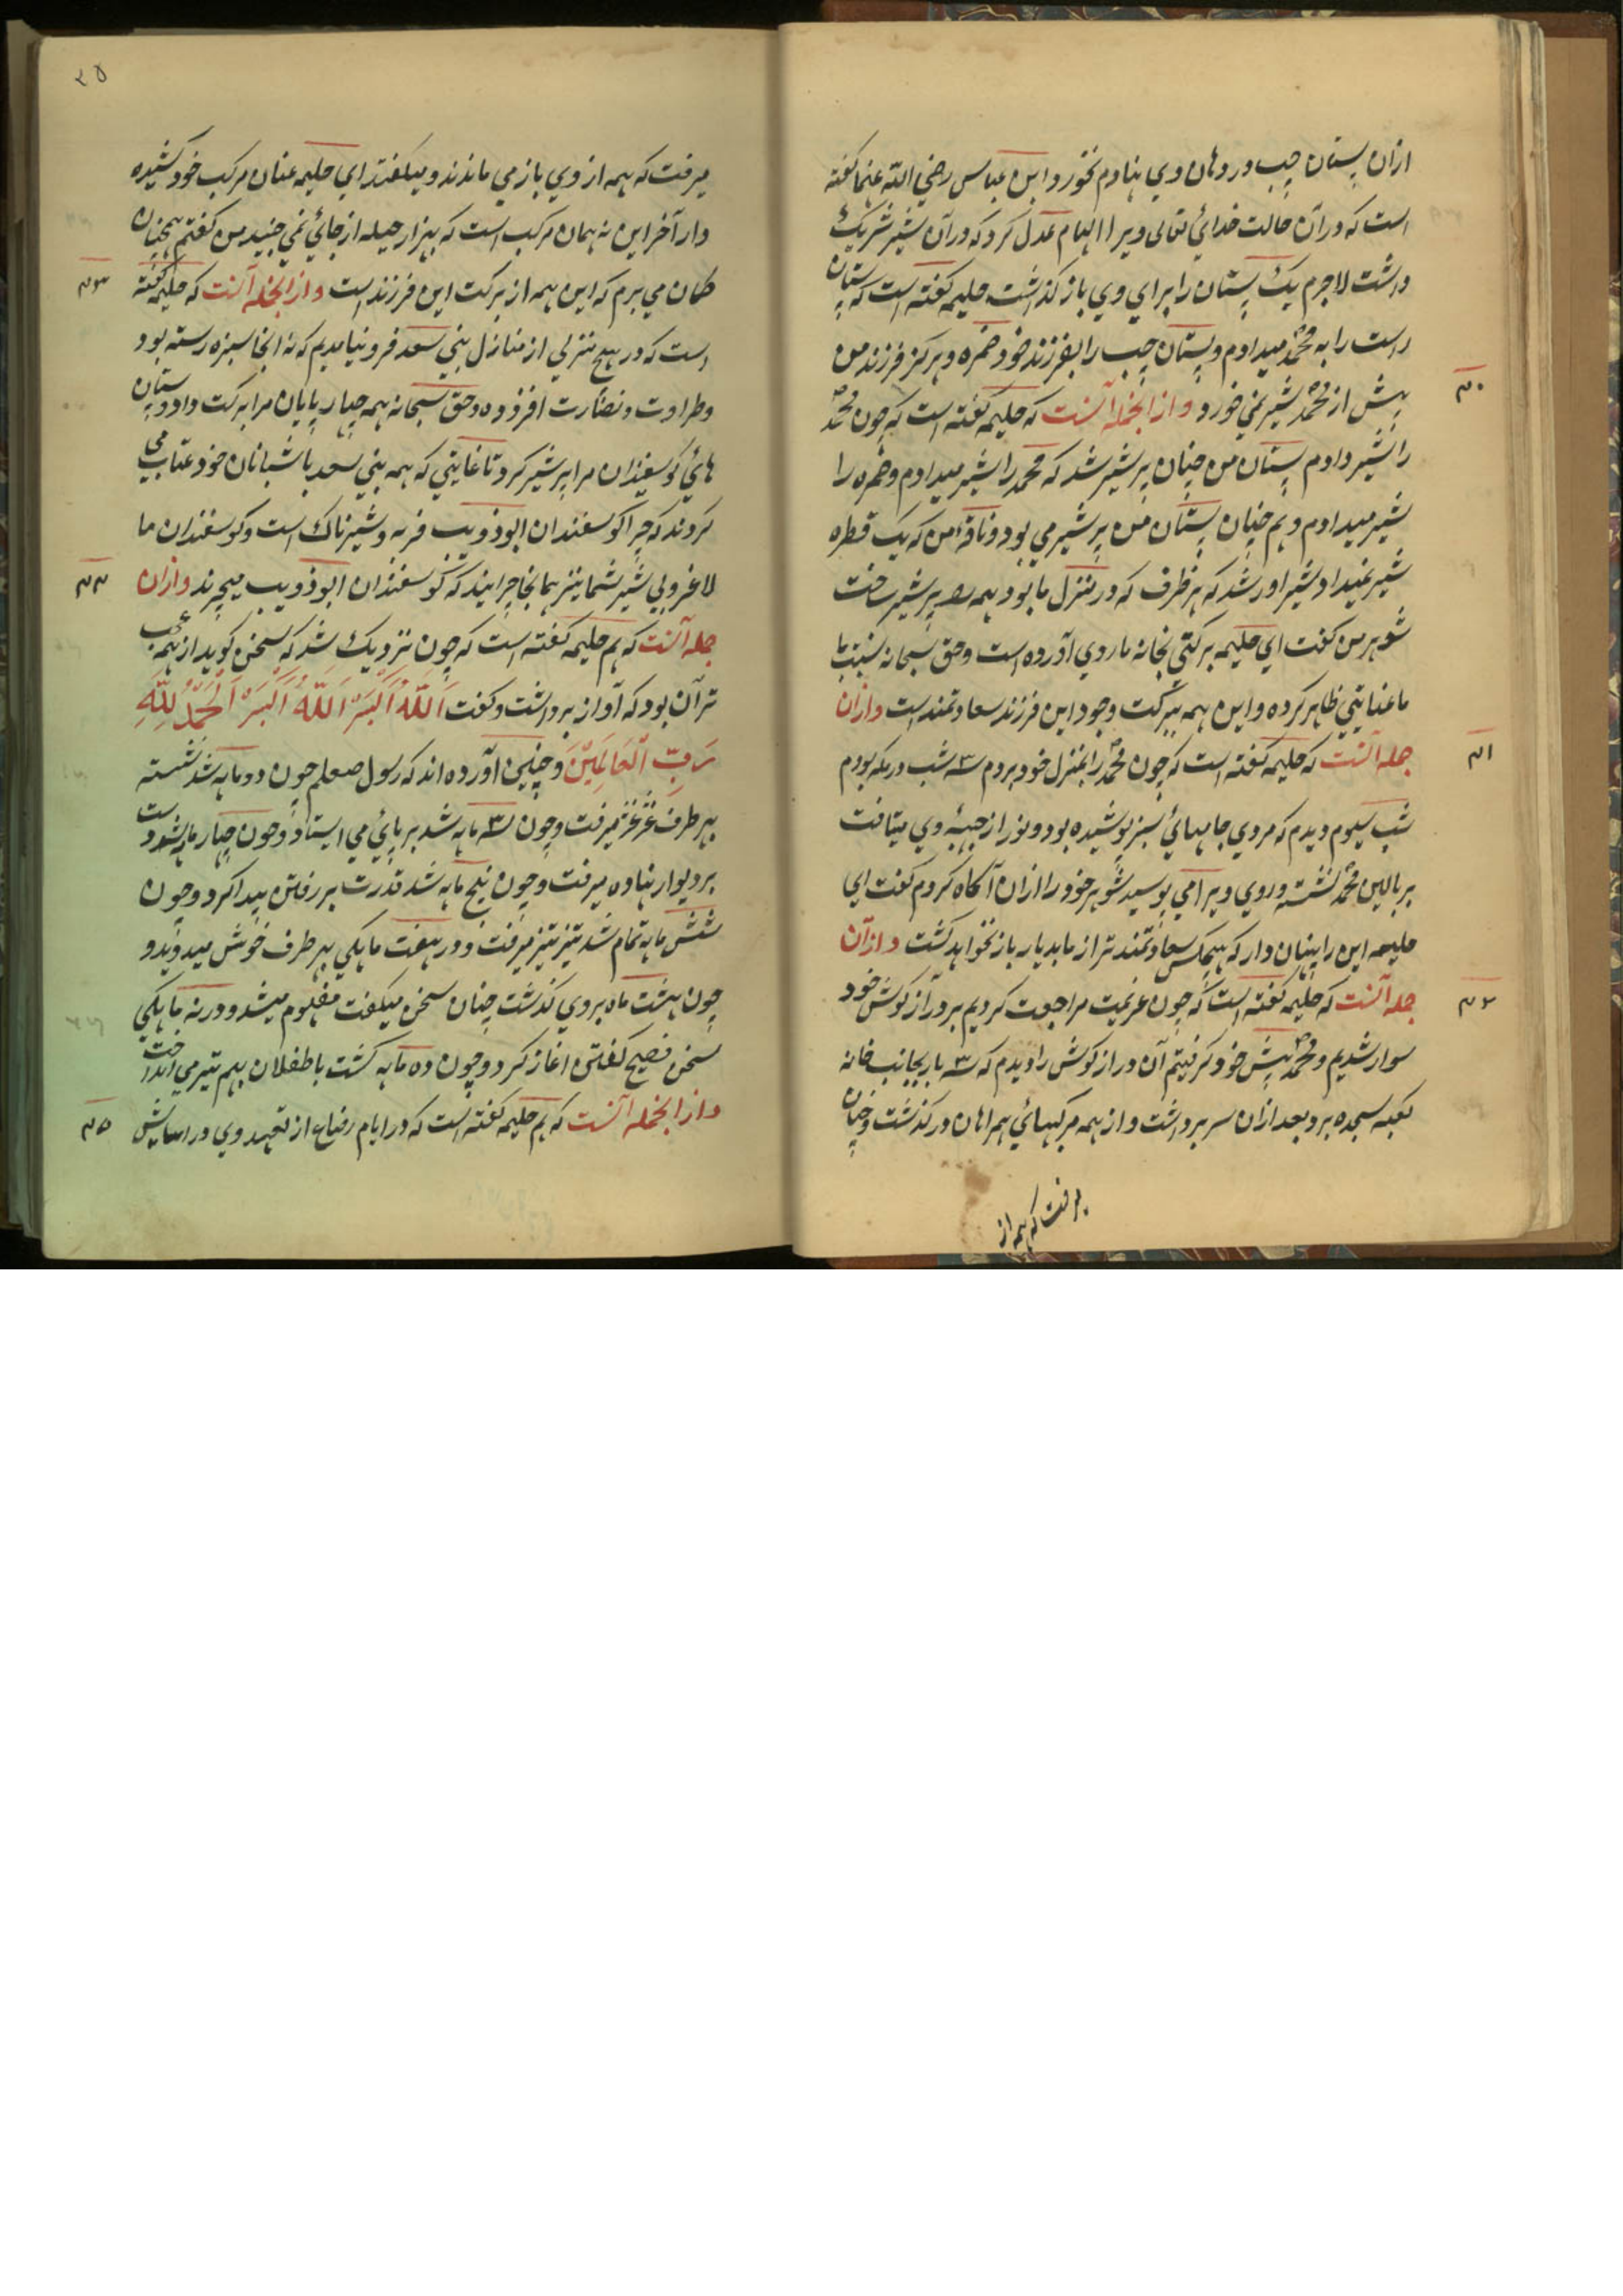 ازان پستان چپ در دهان وی نهادم نخورد ابن عباس رضی الله عنهما گفته
است که در آن حالت خدای تعالی ویرا الهام عدل کرد که در آن شیر شریک
داشت لاجرم یک پستان را برای وی باز گذاشت حلیمه گفته است که پستان
راست را به محمد میدادم و پستان چپ را بفرزند خود ضمره و هرگز فرزند من
۴۰
پیش از محمد شیر نمی خورد و از آنجمله آنست که حلیمه گفته است که چون محمد
را شیر دادم پستان من چنان پر شیر شد که محمد را شیر میدادم و ضمره را
شیر میدادم و هم چنان پستان من پر شیر می بود و ناقه من که یک قطره
شیر نمیداد شیر اور شد که هر ظرف که در منزل ما بود همه را پر شیر ساخت
شوهر من گفت ای حلیمه برکتی بخانه ما روی آورده است و حق سبحانه نسبت با
ما عنایتی ظاهر کرده و این همه ببرکت وجود این فرزند سعادتمند است و ازان
۴۱
جمله آنست که حلیمه گفته است که چون محمد را بمنزل خود بردم سه شب در مکه بودم
شب سیوم دیدم که مردی جامهائ سبز پوشیده بود و نور از جبهه وی میتافت
بر بالین محمد نشسته و روی ویرا می بوسید شوهر خود را ازان آگاه کردم گفت ای
حلیمه این را پنهان دار که هیچکس سعادتمندتر از ما بدیار باز نخواهد گشت و ازآن
۴۲
جمله آنست که حلیمه گفته است که چون عزیمت مراجعت کردیم بر درازگوش خود
سوار شدیم و محمد پیش خود گرفتیم آن درازگوش را دیدم که سه بار بجانب خانه
کعبه سجده برد بعد ازان سر برداشت و از همه مرکبهائ همراهان در گذشت و چنان
یرفت که همه از
۳۵
میرفت که همه از وی باز می ماندند و میگفتند ای حلیمه عنان مرکب خود کشیده
دار آخر این نه همان مرکب است که بهزار حیله از جائی نمی جنبید من گفتم همچنان
۴۳
گمان می برم که این همه از برکت این فرزند است و از آنجمله آنست که حلیمه گفته
است که در هیچ منزلی از منازل بنی سعد فرو نیامدیم که نه آنجا سبزه رسته بود
و طراوت و نضارت افزوده و حق سبحانه همه چهار پایان مرا برکت داد و پستان
هائ گوسفندان مرا پر شیر کرد تا غایتی که همه بنی سعد با شبانان خود عتاب می
کردند که چرا گوسفندان ابو ذویب فربه و شیرناک است و گوسفندان ما
۴۴
لاغر و بی شیر شما نیز همانجا چرانید که گوسفندان ابو ذویب میچرند و ازان
جمله آنست که هم حلیمه گفته است که چون نزدیک شد که سخن گوید از همه عجب
تر آن بود که آواز برداشت و گفت اَللّهُ اَکْبَرْ اَللّهُ اَکْبَرْ اَلْحَمْدُ لِلّهِ
رَبِّ الْعَالَمِیْنَ و چنین آورده اند که رسول صلعم چون دو ماهه شد نشسته
بهر طرف غژغژ میرفت و چون سه ماهه شد بر پائ می ایستاد و چون چهار ماهه شد دست
بر دیوار نهاده میرفت و چون پنج ماهه شد قدرت بر رفتن پیدا کرد و چون
شش ماهه تمام شد تیز تیز میرفت و در هفت ماهگی بهر طرف خوش میدوید و
چون هشت ماه بر وی گذشت چنان سخن میگفت مفهوم میشد و در نه ماهگی
سخن فصیح گفتن اغاز کرد و چون ده ماهه گشت با طفلان بهم تیر می انداخت
۴۵
و از آنجمله آنست که هم حلیمه گفته است که در ایام رضاع از تعهد وی در اسایش